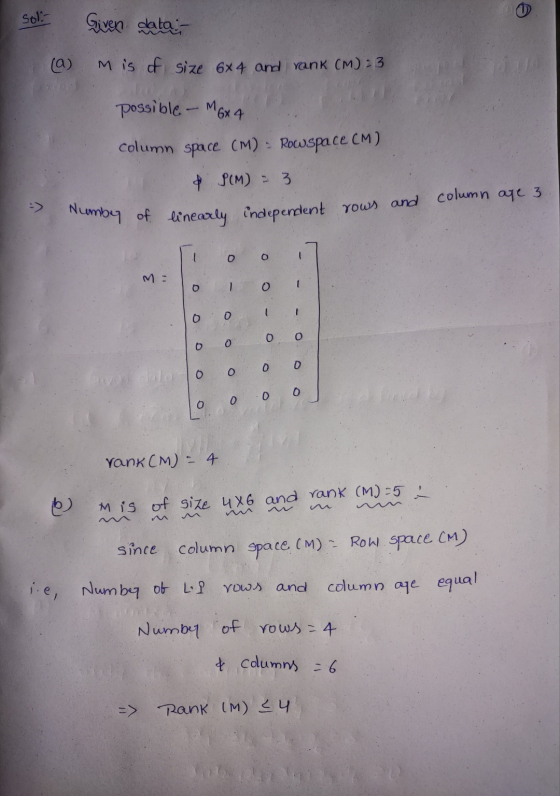 Sol:- Given data:- ①
(a) M is of size 6x4 and rank (M) = 3
possible - M6x4
column space (M) = Rowspace (M)
& ρ(M) = 3
=> Number of linearly independent rows and column are 3
M =
1 0 0 1
0 1 0 1
0 0 1 1
0 0 0 0
0 0 0 0
0 0 0 0
rank (M) = 4
(b) M is of size 4x6 and rank (M) = 5 :-
since column space (M) = Row space (M)
i.e, Number of L.I rows and column are equal
Number of rows = 4
& columns = 6
=> Rank (M) ≤ 4